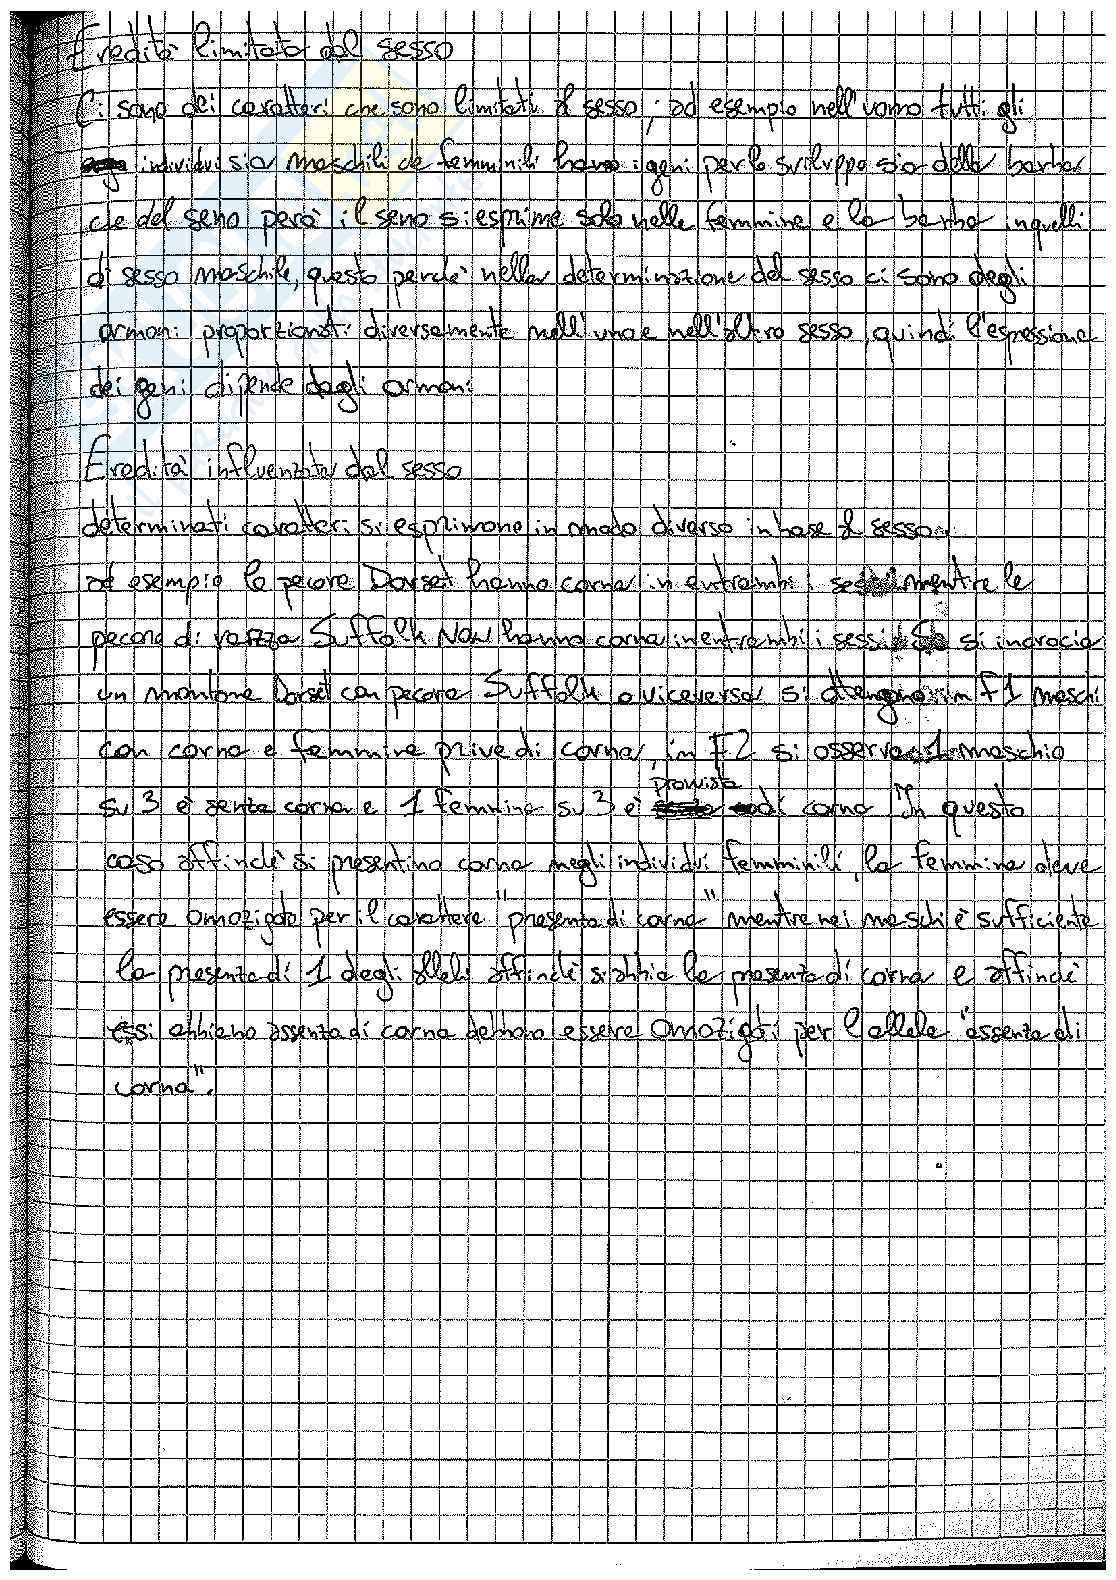 Eredità limitata dal sesso
Ci sono dei caratteri che sono limitati al sesso; ad esempio nell'uomo tutti gli
individui sia maschili che femminili hanno i geni per lo sviluppo sia della barba
che del seno però il seno si esprime solo nelle femmine e la barba in quelli
di sesso maschile, questo perchè nella determinazione del sesso ci sono degli
ormoni proporzionati diversamente nell'uno e nell'altro sesso, quindi l'espressione
dei geni dipende dagli ormoni
Eredità influenzata dal sesso
determinati caratteri si esprimono in modo diverso in base al sesso
ad esempio le pecore Dorset hanno corna in entrambi i sessi mentre le
pecore di razza Suffolk NON hanno corna in entrambi i sessi. Se si incrocia
un montone Dorset con pecora Suffolk o viceversa si ottengono in F1 maschi
con corna e femmine prive di corna, in F2 si osserva 1 maschio
su 3 è senza corna e 1 femmina su 3 è provvista di corna In questo
caso affinchè si presentino corna negli individui femminili, la femmina deve
essere omozigote per il carattere "presenza di corna" mentre nei maschi è sufficiente
la presenza di 1 degli alleli affinchè si abbia la presenza di corna e affinchè
essi abbiano assenza di corna debbono essere omozigoti per l'allele "assenza di
corna".